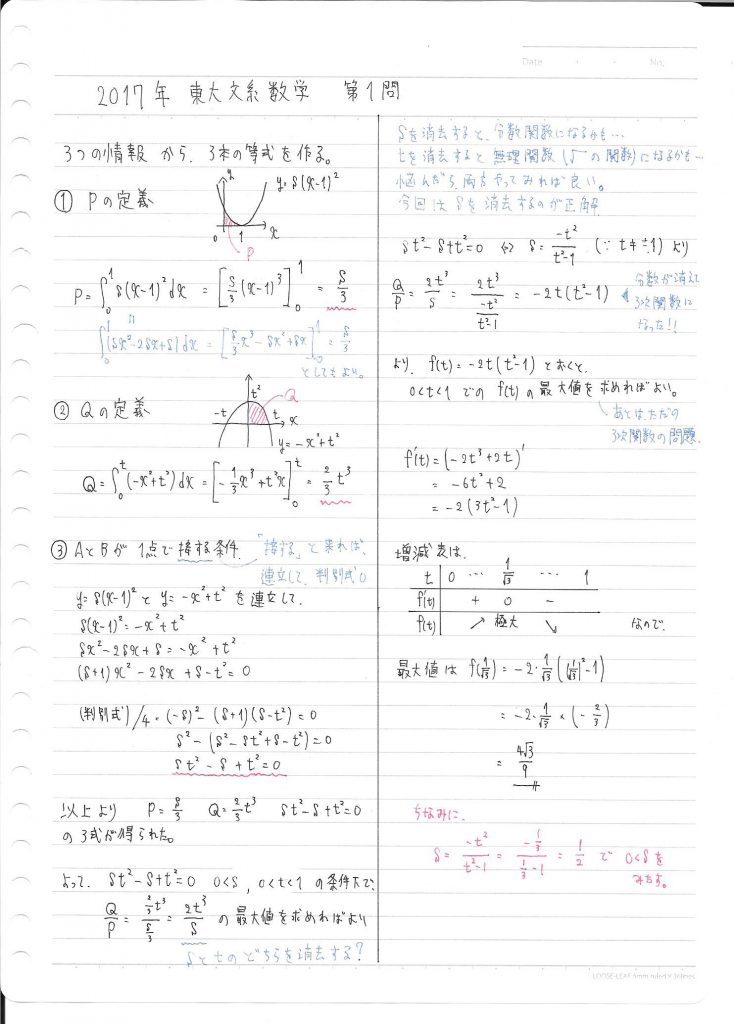 Date ・ ・ No.
2017年 東大文系数学 第1問
3つの情報から、3本の等式を作る。
① Pの定義
y
y=s(x-1)²
0 1 x
P
P=∫₀¹ s(x-1)²dx = [s/3 (x-1)³]₀¹ = s/3
∫₀¹(sx²-2sx+s)dx = [s/3 x³-sx²+sx]₀¹ = s/3
としてもよい。
② Qの定義
t²
Q
-t t x
y=-x²+t²
Q=∫₀ᵗ(-x²+t²)dx = [-1/3 x³+t²x]₀ᵗ = 2/3 t³
③ AとBが1点で接する条件.
「接する」と来れば、
連立して、判別式0
y=s(x-1)² と y=-x²+t² を連立して.
s(x-1)²=-x²+t²
sx²-2sx+s=-x²+t²
(s+1)x²-2sx+s-t²=0
(判別式)/4=(-s)²-(s+1)(s-t²)=0
s²-(s²-st²+s-t²)=0
st²-s+t²=0
以上より P=s/3 Q=2/3 t³ st²-s+t²=0
の3式が得られた。
よって、st²-s+t²=0 0<s, 0<t<1 の条件下で、
Q/P = (2/3 t³)/(s/3) = 2t³/s の最大値を求めればよい
sとtのどちらを消去する?
sを消去すると、分数関数になるかも…
tを消去すると無理関数(√の関数)になるかも…
悩んだら、両方やってみれば良い。
今回はsを消去するのが正解
st²-s+t²=0 ⇔ s=-t²/(t²-1) (∵ t≠±1) より
Q/P = 2t³/s = 2t³/(-t²/(t²-1)) = -2t(t²-1)
分数が消えて
3次関数に
なった!!
より、f(t)=-2t(t²-1) とおくと、
0<t<1 での f(t) の最大値を求めればよい。
あとは、ただの
3次関数の問題.
f'(t)=(-2t³+2t)'
=-6t²+2
=-2(3t²-1)
増減表は、
t 0 … 1/√3 … 1
f'(t) + 0 -
f(t) ↗ 極大 ↘ なので、
最大値は f(1/√3)=-2・1/√3((1/√3)²-1)
=-2・1/√3×(-2/3)
=4√3/9
ちなみに、
s=-t²/(t²-1)=(-1/3)/(1/3-1)=1/2 で 0<sを
みたす。
LOOSE-LEAF 6mm ruled × 36lines